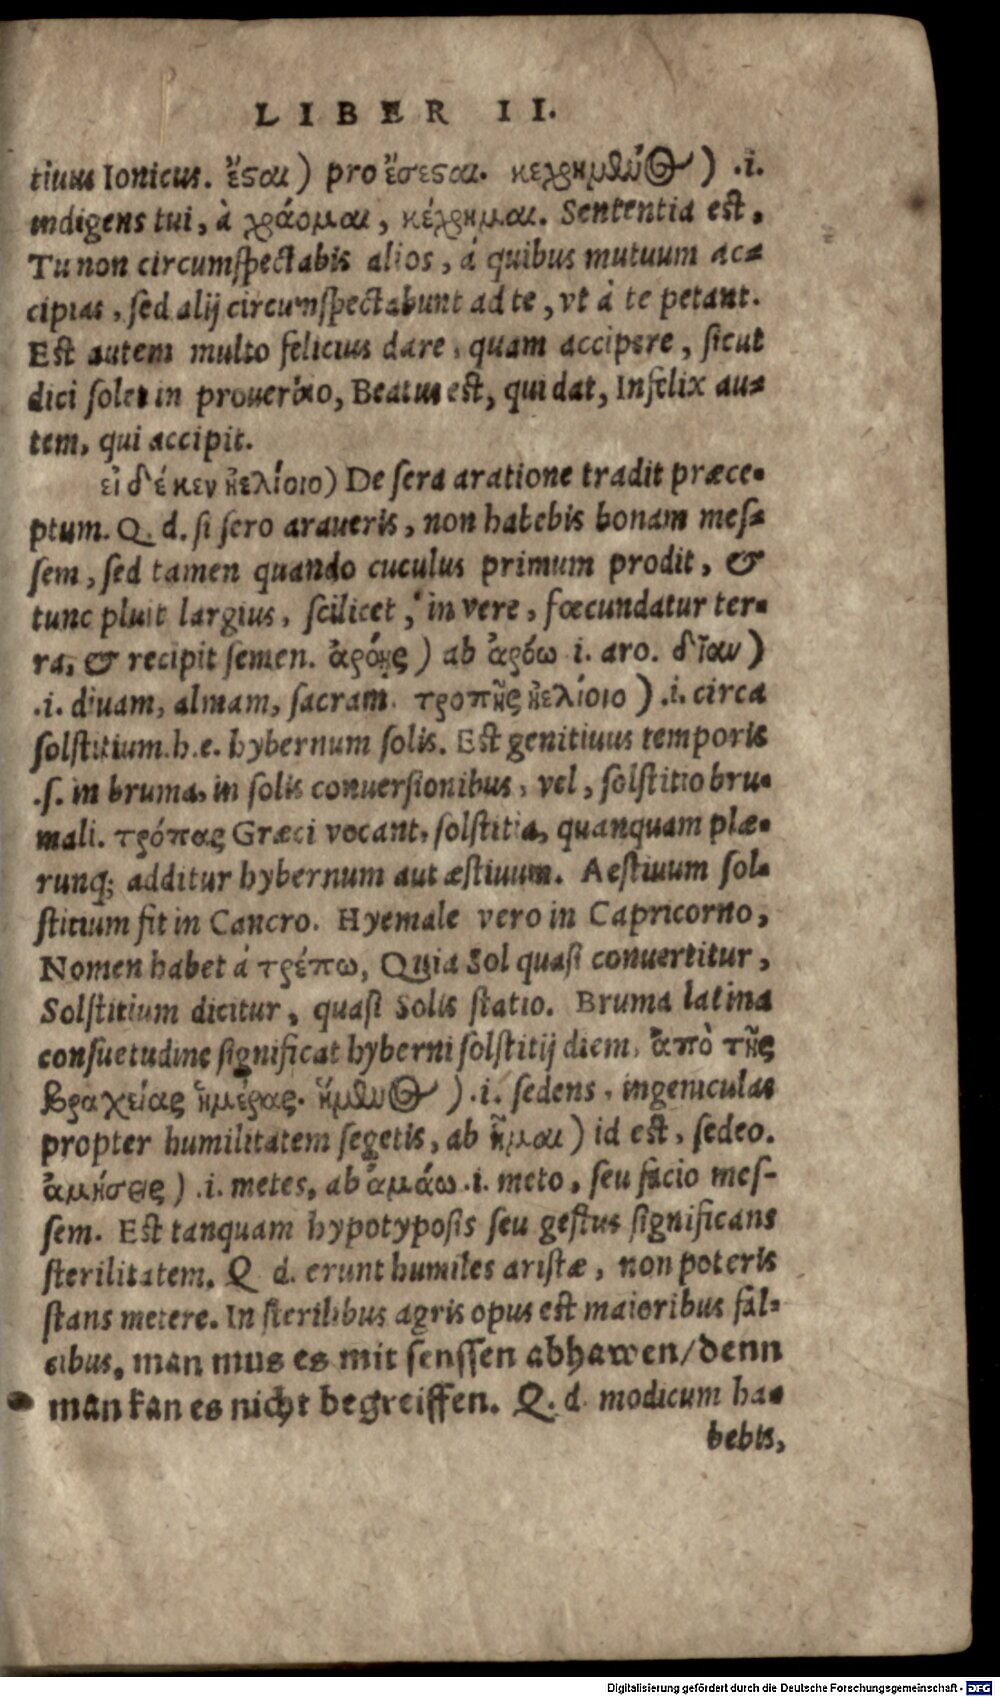 LIBER II.
tiuus Ionicus. ἔσαι) pro ἔσεσαι. κεχρημένος) .i.
indigens tui, à χράομαι, κέχρημαι. Sententia est,
Tu non circumspectabis alios, á quibus mutuum ac-
cipias, sed alij circumspectabunt ad te, vt à te petant.
Est autem multo felicius dare, quam accipere, sicut
dici solet in prouerbio, Beatus est, qui dat, Infelix au-
tem, qui accipit.
εἰ δέ κεν ἠελίοιο) De sera aratione tradit præce-
ptum. Q. d. si sero araueris, non habebis bonam mes-
sem, sed tamen quando cuculus primum prodit, &
tunc pluit largius, scilicet, in vere, fœcundatur ter-
ra, & recipit semen. ἀρόῃς) ab ἀρόω i. aro. δῖαν)
.i. diuam, almam, sacram. τροπῇς ἠελίοιο) .i. circa
solstitium.h.e. hybernum solis. Est genitiuus temporis
.s. in bruma, in solis conuersionibus, vel, solstitio bru-
mali. τρόπας Græci vocant, solstitia, quanquam plæ-
runq; additur hybernum aut æstiuum. Aestiuum sol-
stitium fit in Cancro. Hyemale vero in Capricorno,
Nomen habet á τρέπω, Quia Sol quasi conuertitur,
Solstitium dicitur, quasi Solis statio. Bruma latina
consuetudine significat hyberni solstitij diem, ἀπὸ τῆς
βραχείας ἡμέρας. ἥμενος) .i. sedens, ingeniculas
propter humilitatem segetis, ab ἧμαι) id est, sedeo.
ἀμήσεις) .i. metes, ab ἀμάω .i. meto, seu facio mes-
sem. Est tanquam hypotyposis seu gestus significans
sterilitatem. Q d. erunt humiles aristæ, non poteris
stans metere. In sterilibus agris opus est maioribus fal-
cibus, man mus es mit senssen abhawen/denn
man kan es nicht begreiffen. Q. d. modicum ha-
bebis,
Digitalisierung gefördert durch die Deutsche Forschungsgemeinschaft - DFG